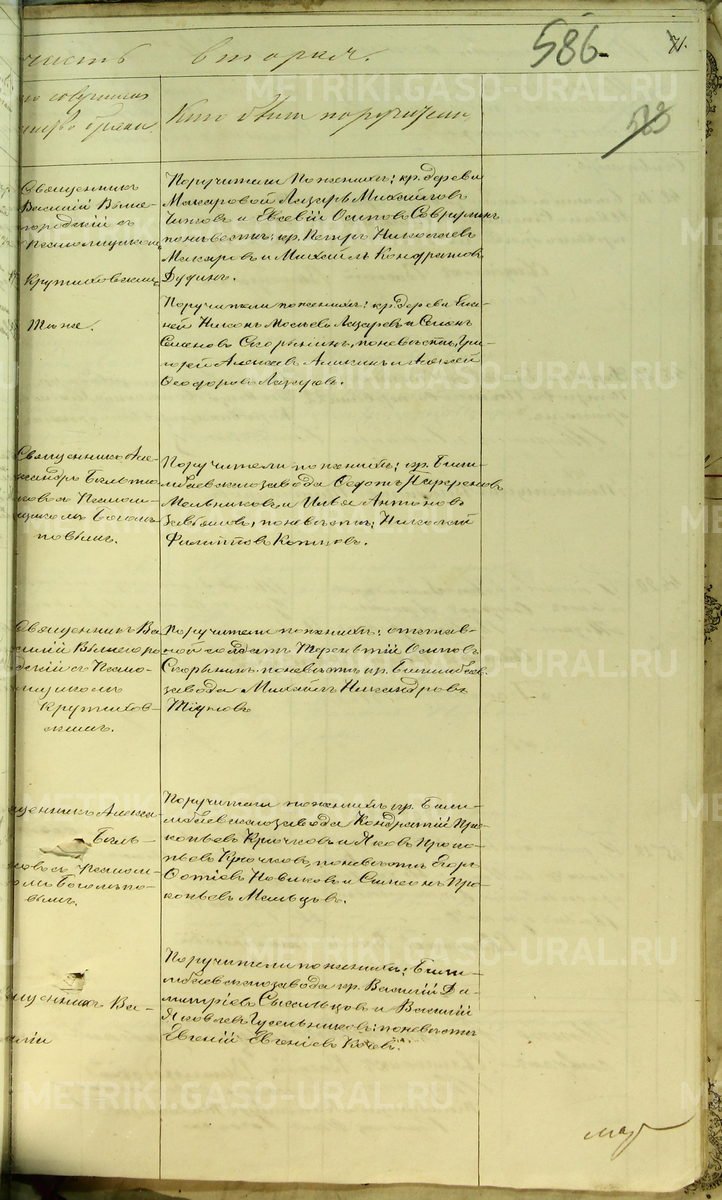 часть второя.
586.
Кто совершал
таинство брака
Кто были поручители
Священник
Василий Выше-
городский с
Псаломщиком
Крутиховским
Поручители по женихе: кр. деревни
Макаровой Лазарь Михайлов
и Евсевий Осипов
по невесте: кр. Петр Николаев
Макаров и Михаил Кондратов
Дудин.
Тоже.
Поручители по женихе: кр. деревни
Никон Мосеев Лазарев и Семен
Семенов Скорынин, по невесте, Гри-
горий Алексеев Аликин и Алексей
Феодоров Лазарев.
Священник Але-
ксандр
с Псалом-
щиком Боголе-
повым.
Поручители по женихе: кр. Били-
мбаевского завода Федот
Мельников, и Илья Антонов
Завьялов, по невесте: Николай
Филиппов Копылов.
Священник Ва-
силий Вышегоро-
дский с Псало-
мщиком
Крутихов-
ским.
Поручители по женихе: отстав-
ной солдат Терентий Осипов
Скорынин. по невесте кр. Билимбаев.
завода Михаил Никандров
Тіунов
Священник Алекса-
Бель-
с Псалом-
щиком Боголепо-
вым.
Поручители по женихе кр. Били-
мбаевского завода Кондратий Про-
копьев Крючков и Яков Проко-
пьев Крючков, по невесте Егор
Фотиев Новиков и Симеон Про-
копьев Мельцов.
Священник Ва-
силий
Поручители по женихе: Били-
мбаевского завода кр. Василий Ди-
митриев Сысельцов и Василий
Яковлев Гусельников: по невесте
Евгений Евгениев
METRIKI.GASO-URAL.RU